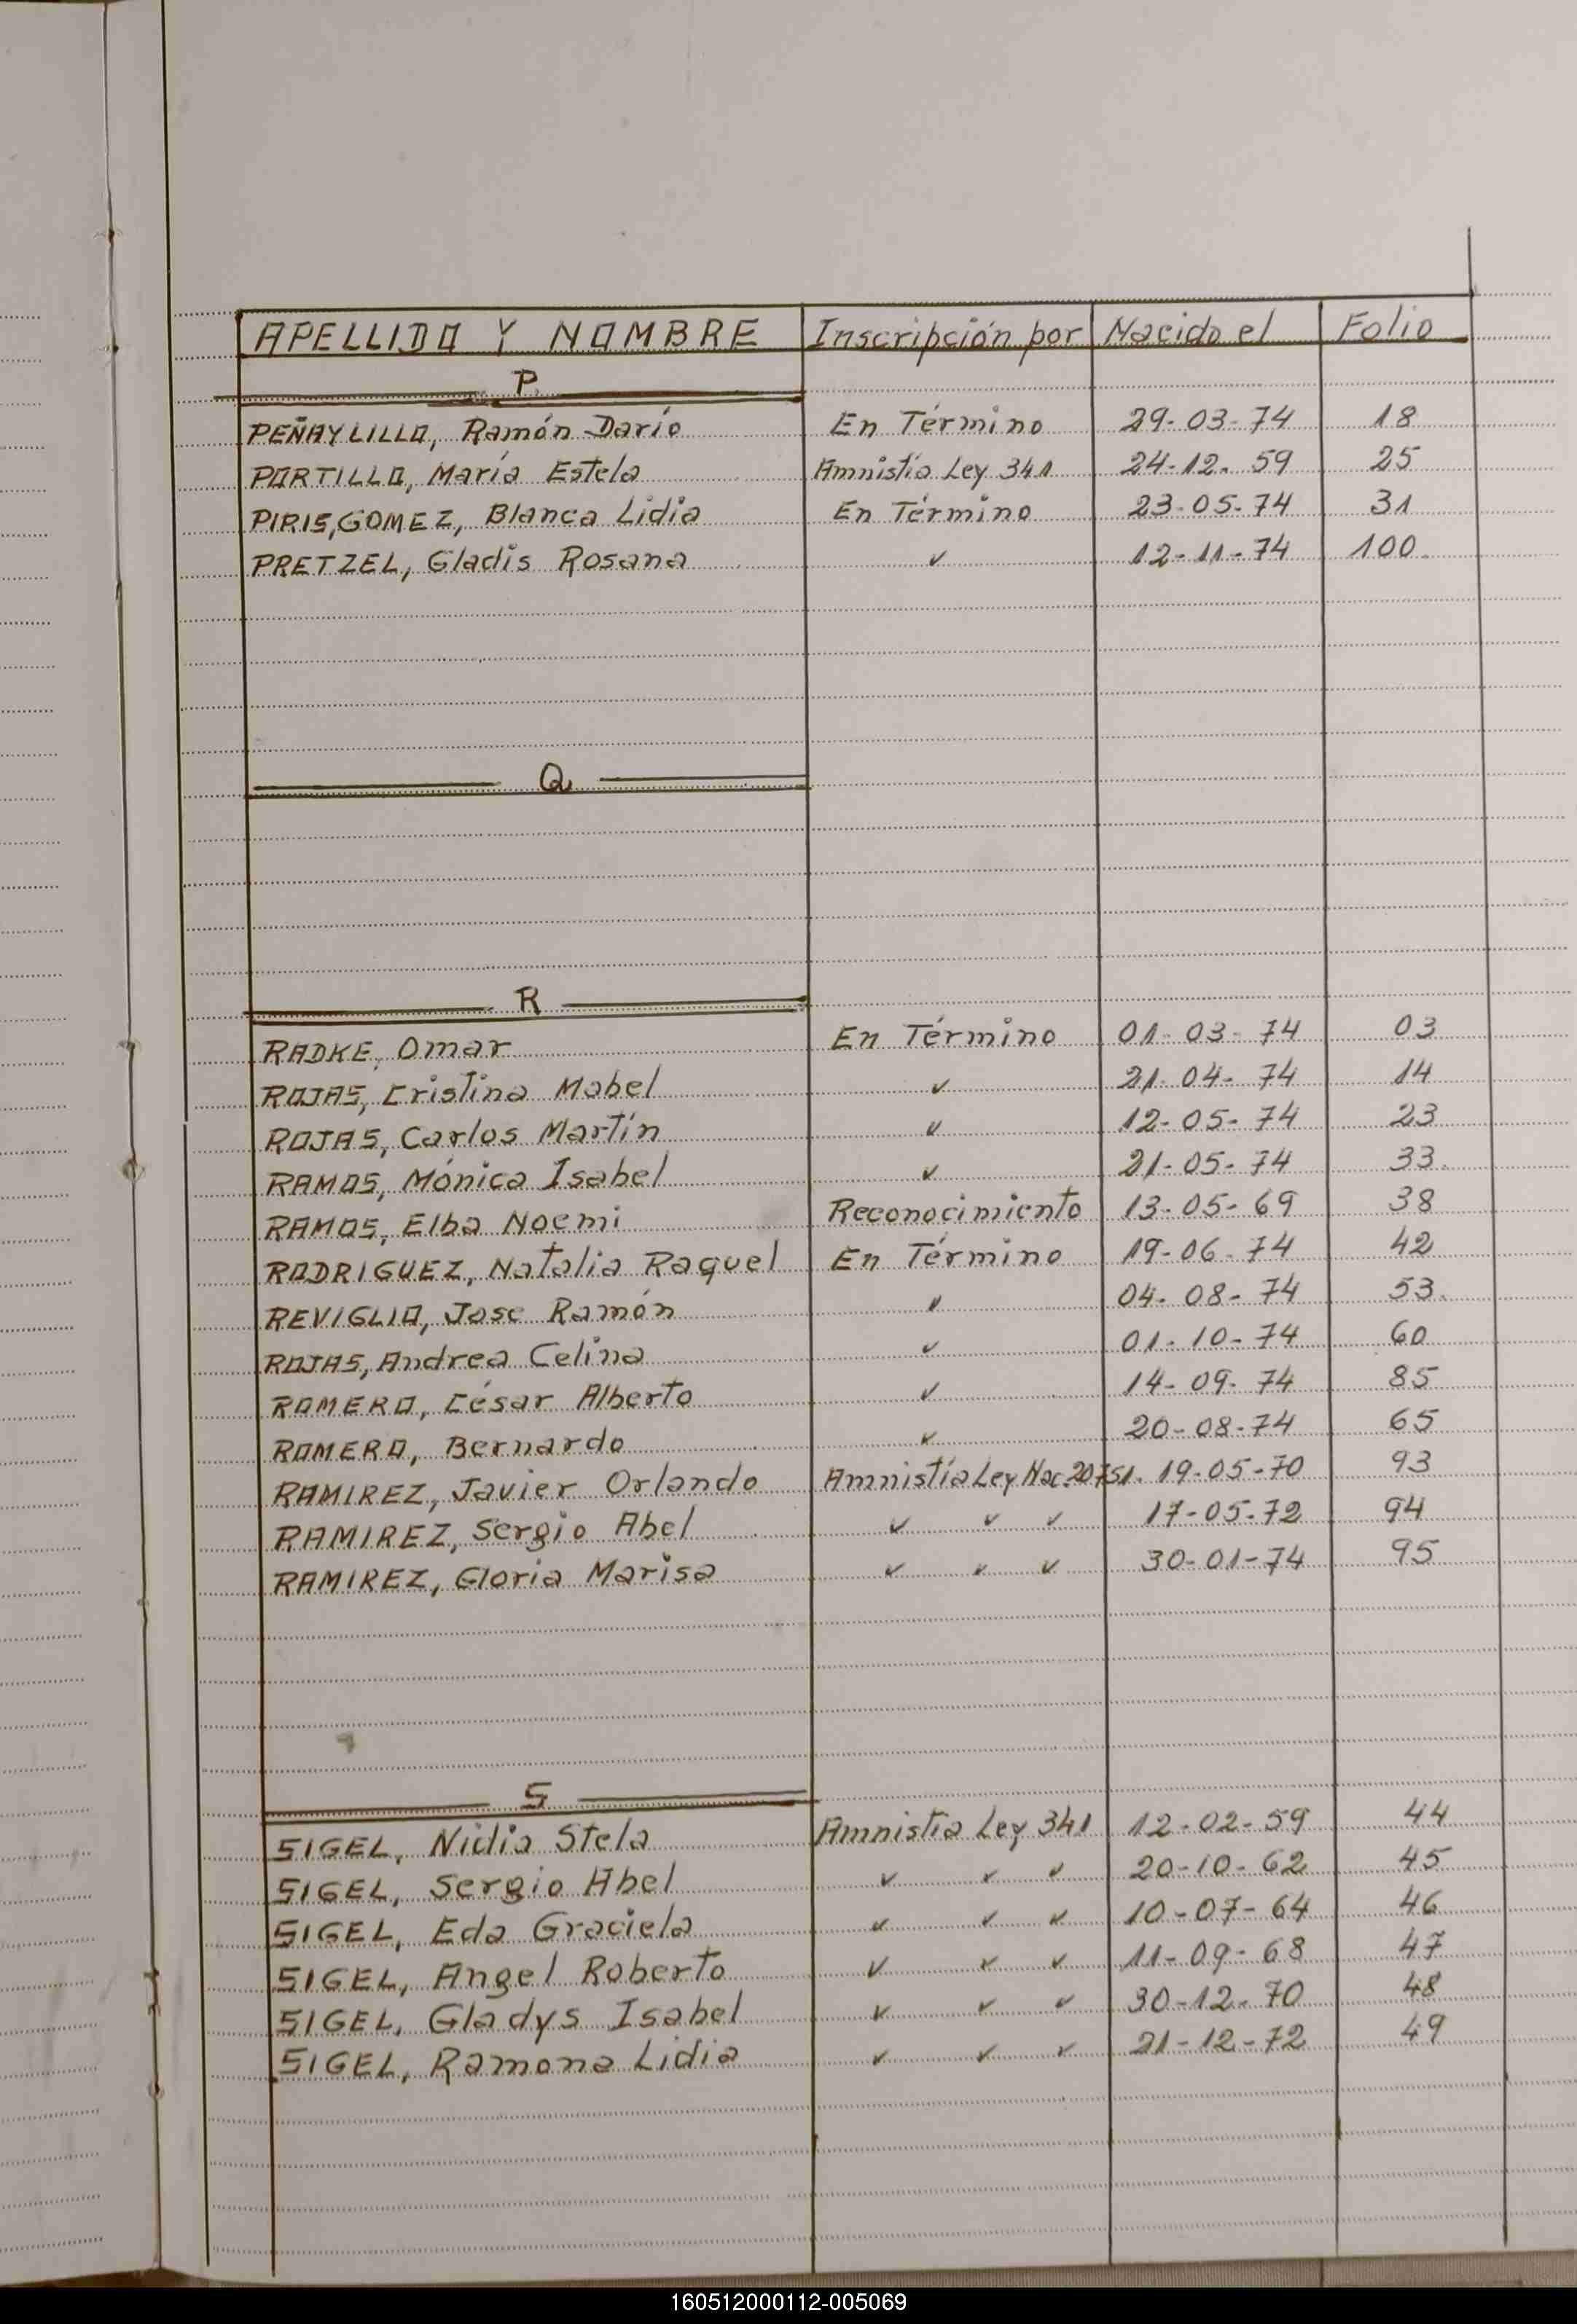 APELLIDO Y NOMBRE Inscripción por Nacido el Folio
P
PEÑAYLILLO, Ramón Darío En Término 29-03-74 18
PORTILLO, María Estela Amnistía Ley 341 24-12-59 25
PIRIS, GOMEZ, Blanca Lidia En Término 23-05-74 31
PRETZEL, Gladis Rosana ✓ 12-11-74 100
Q
R
RADKE, Omar En Término 01-03-74 03
ROJAS, Cristina Mabel ✓ 21-04-74 14
ROJAS, Carlos Martín ✓ 12-05-74 23
RAMOS, Mónica Isabel ✓ 21-05-74 33
RAMOS, Elba Noemi Reconocimiento 13-05-69 38
RODRIGUEZ, Natalia Raquel En Término 19-06-74 42
REVIGLIO, Jose Ramón ✓ 04-08-74 53
ROJAS, Andrea Celina ✓ 01-10-74 60
ROMERO, César Alberto ✓ 14-09-74 85
ROMERO, Bernardo ✓ 20-08-74 65
RAMIREZ, Javier Orlando Amnistía Ley Nac. 20751. 19-05-70 93
RAMIREZ, Sergio Abel ✓ ✓ ✓ 17-05-72 94
RAMIREZ, Gloria Marisa ✓ ✓ ✓ 30-01-74 95
S
SIGEL, Nidia Stela Amnistia Ley 341 12-02-59 44
SIGEL, Sergio Abel ✓ ✓ ✓ 20-10-62 45
SIGEL, Eda Graciela ✓ ✓ ✓ 10-07-64 46
SIGEL, Angel Roberto ✓ ✓ ✓ 11-09-68 47
SIGEL, Gladys Isabel ✓ ✓ ✓ 30-12-70 48
SIGEL, Ramona Lidia ✓ ✓ ✓ 21-12-72 49
160512000112-005069